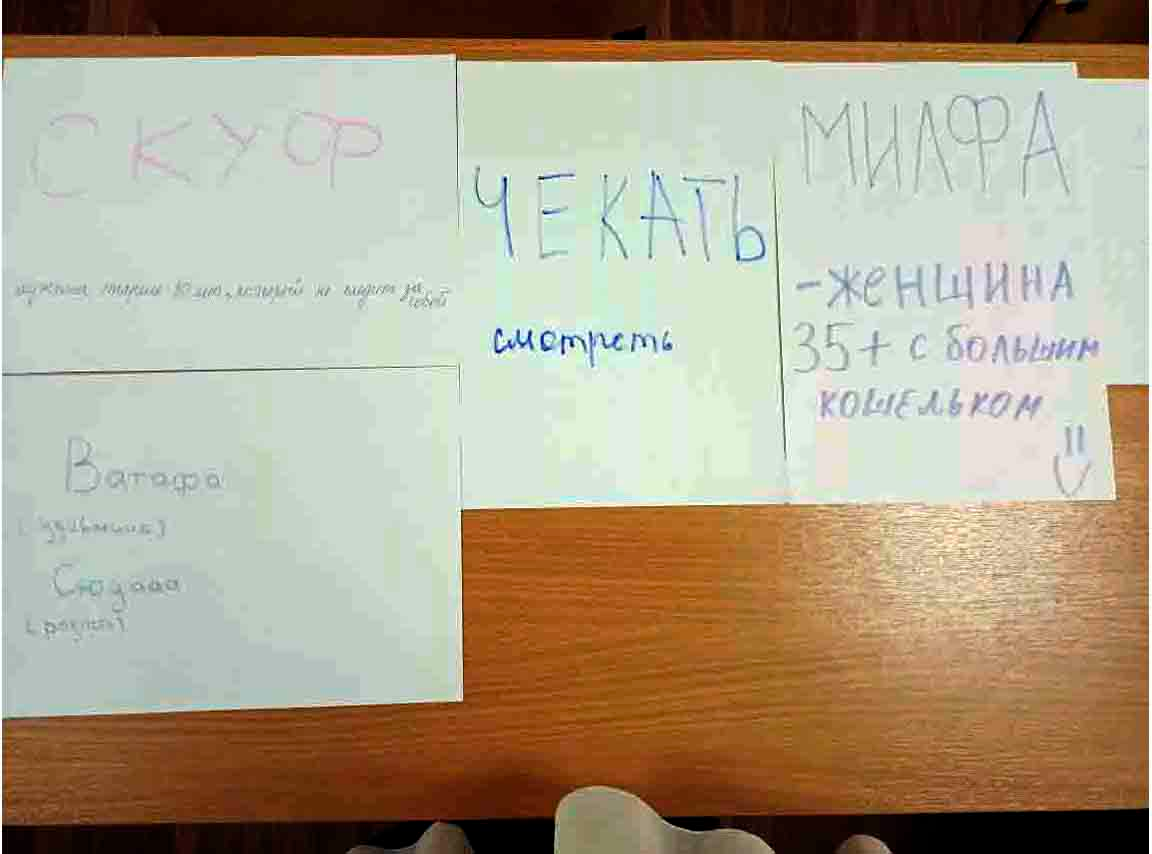 СКУФР
мужчина старше 30 лет, который не следит за
собой
ЧЕКАТЬ
смотреть
МИЛФА
-ЖЕНЩИНА
35+ С БОЛЬШИМ
КОШЕЛЬКОМ
=)
Ватафа
(удивление)
Сюдааа
(радость)